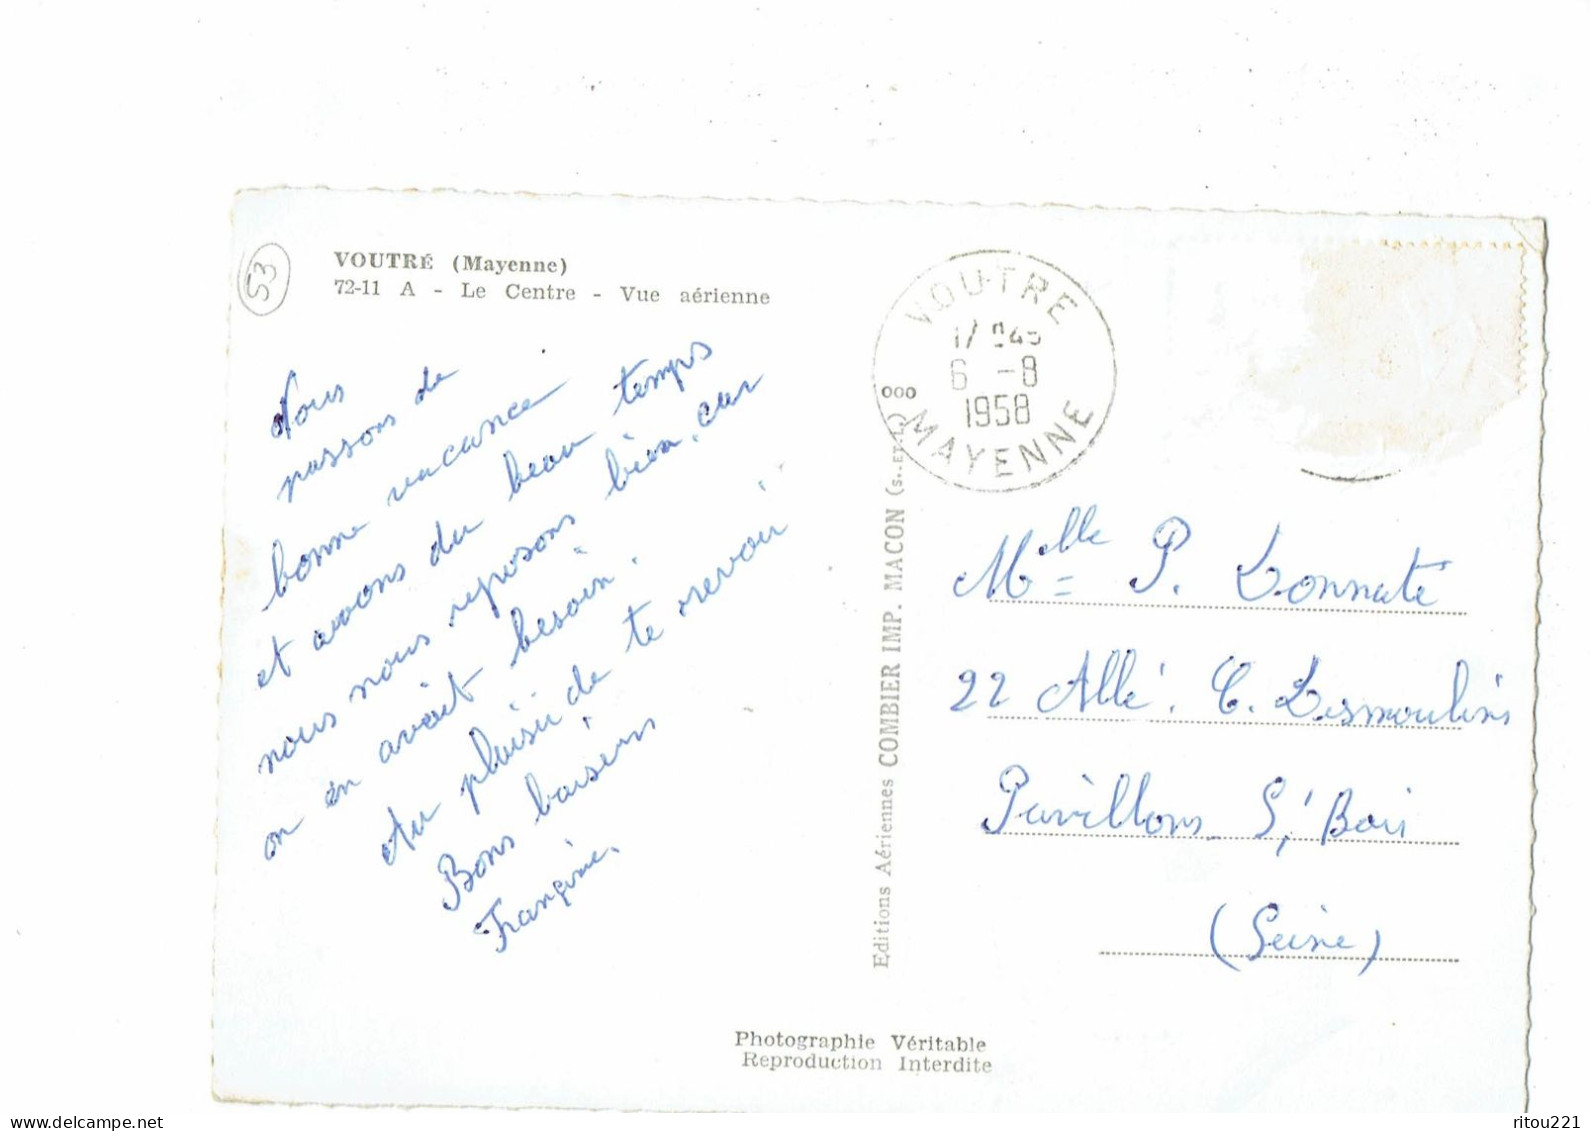 53
VOUTRÉ (Mayenne)
72-11 A - Le Centre - Vue aérienne
Nous
passons de
bonne vacance
et avons du beau temps
nous nous reposons bien, car
on en avait besoin.
Au plaisir de te revoir
Bons baisers
Françoise.
VOUTRE
6 -8
1958
MAYENNE
Editions Aériennes COMBIER IMP. MACON (S.-ET-L.)
Mlle P. Lonnate
22 Allé. C. Desmoulins
Pavillons S/ Bois
(Seine)
Photographie Véritable
Reproduction Interdite
delcampe.net
ritou221